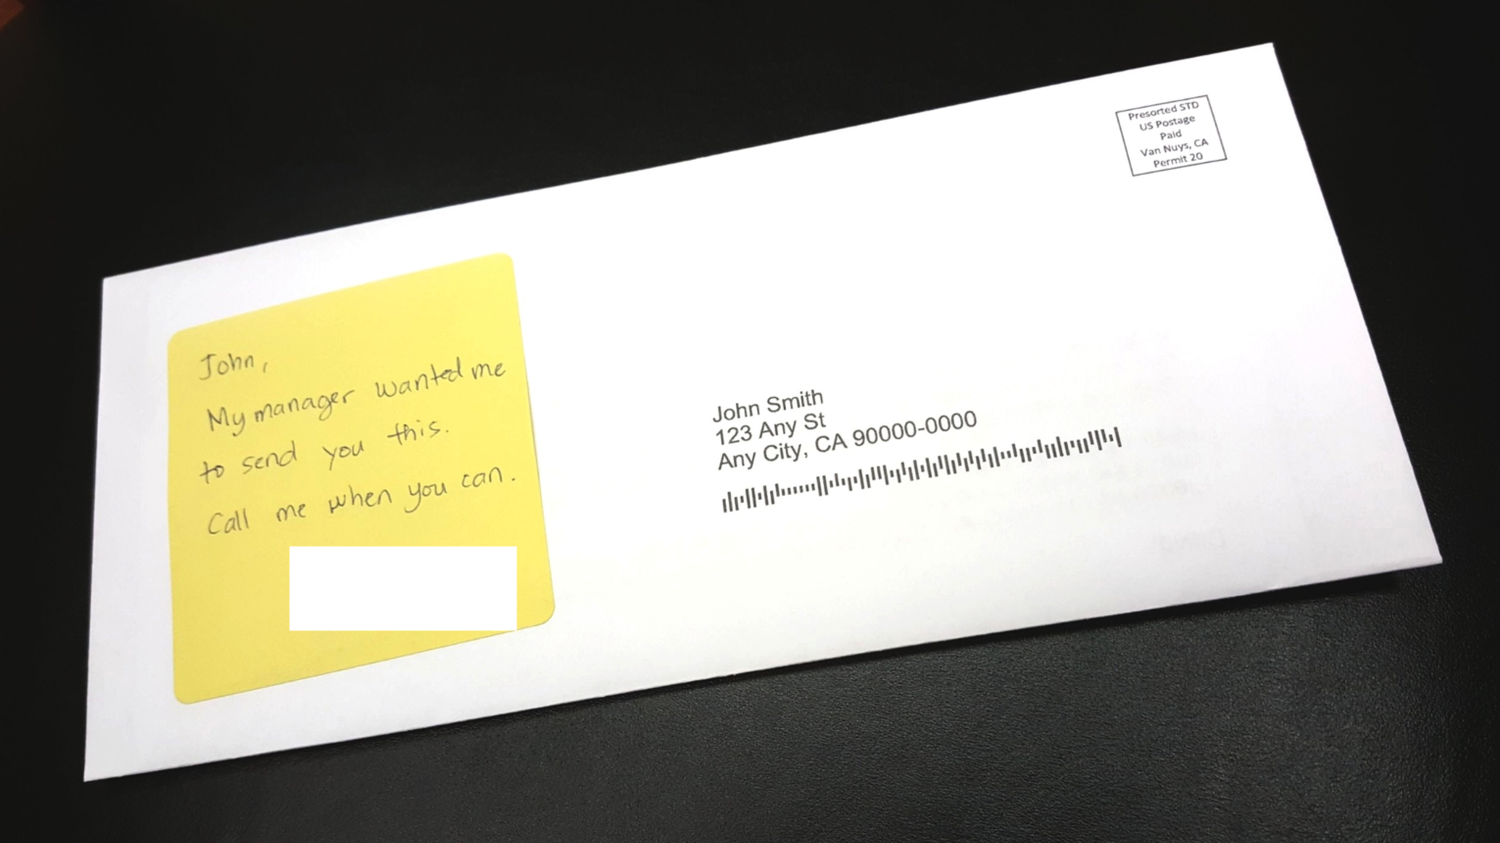 John,
My manager wanted me
to send you this.
Call me when you can.
Presorted STD
US Postage
Paid
Van Nuys, CA
Permit 20
John Smith
123 Any St
Any City, CA 90000-0000